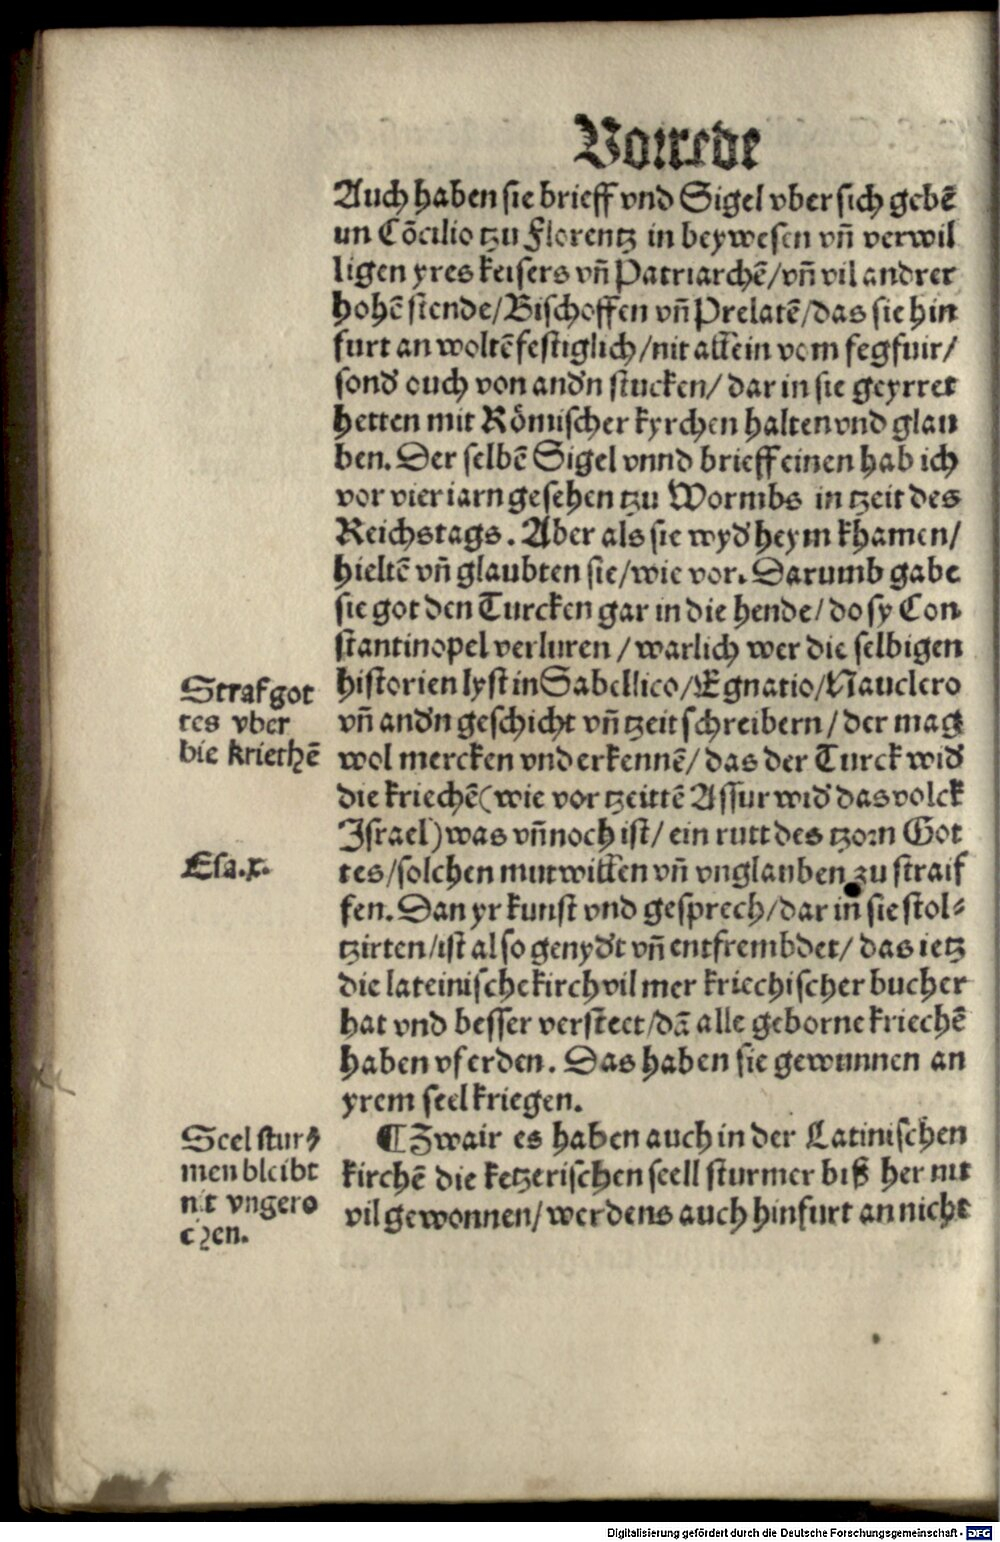 Vorrede
Auch haben sie brieff vnd Sigel vber sich gebē
im Cōcilio tzu Florentz in beywesen vñ verwil
ligen yres keisers vñ Patriarchē/vñ vil andrer
hohē stende/Bischoffen vñ Prelatē/das sie hin
furt an woltē festiglich/nit allein vom fegfuir/
sond' ouch von and'n stucken/ dar in sie geyrret
hetten mit Römischer kyrchen halten vnd glau
ben. Der selbē Sigel vnnd brieff einen hab ich
vor vier iarn gesehen tzu Wormbs in tzeit des
Reichstags. Aber als sie wyd' heym khamen/
hieltē vñ glaubten sie/wie vor. Darumb gabe
sie got den Turcken gar in die hende/ do sy Con
stantinopel verluren / warlich wer die selbigen
historien lyst in Sabellico/Egnatio/Nauclero
vñ and'n geschicht vñ tzeit schreibern / der mag
wol mercken vnd erkennē/ das der Turck wid'
die kriechē (wie vor tzeittē Assur wid' das volck
Israel) was vñ noch ist/ ein rutt des tzorn Got
tes/solchen mutwillen vñ vnglauben zu straif
fen. Dan yr kunst vnd gesprech/dar in sie stol-
tzirten/ist also genyd't vñ entfrembdet/ das ietz
die lateinische kirch vil mer kriechischer bucher
hat vnd besser versteet/dā alle geborne kriechē
haben vf erden. Das haben sie gewunnen an
yrem seel kriegen.
¶ Zwair es haben auch in der Latinischen
kirchē die ketzerischen seell sturmer biß her nit
vil gewonnen/ werdens auch hinfurt an nicht
Straf got
tes vber
die kriechē
Esa.x.
Seel stur-
men bleibt
nit vngero
chen.
Digitalisierung gefördert durch die Deutsche Forschungsgemeinschaft - DFG